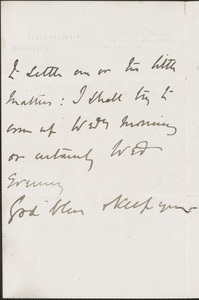 to settle one or two little
matters: I shall try to
come up Wedy Morning
or certainly Wed
Evening
God bless & keep you